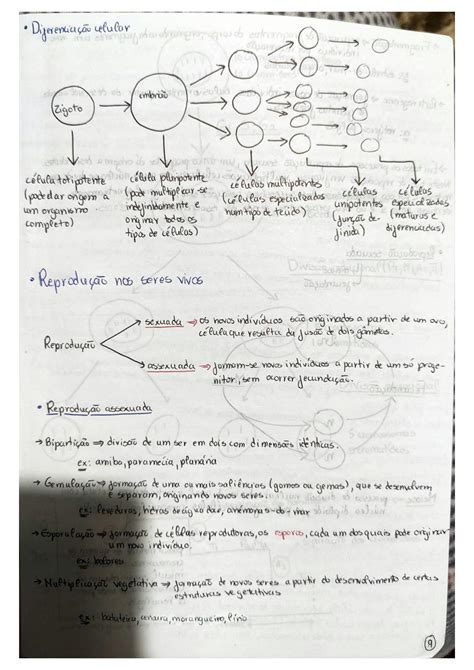 • Diferenciação celular
Zigoto
embrião
célula totipotente
(pode dar origem a
um organismo
completo)
célula pluripotente
(pode multiplicar-se
indefinidamente e
originar todos os
tipos de células)
células multipotentes
(células especializadas
num tipo de tecido)
células
unipotentes
(função de-
finida)
células
especializadas
(maturas e
diferenciadas)
• Reprodução nos seres vivos
Reprodução
sexuada → os novos indivíduos são originados a partir de um ovo,
célula que resulta da fusão de dois gâmetas.
assexuada → formam-se novos indivíduos a partir de um só proge-
nitor, sem ocorrer fecundação.
• Reprodução assexuada
→ Bipartição ⇒ divisão de um ser em dois com dimensões idênticas.
ex: amiba, paramecia, planária
→ Gemulação ⇒ formação de uma ou mais saliências (gomos ou gemas), que se desenvolvem
e separam, originando novos seres.
ex: leveduras, hidras de água doce, anémonas-do-mar
→ Esporulação ⇒ formação de células reprodutoras, os esporos, cada um dos quais pode originar
um novo indivíduo.
ex: bolores
→ Multiplicação vegetativa ⇒ formação de novos seres a partir do desenvolvimento de certas
estruturas vegetativas
ex: batateira, cenoura, morangueiro, lírio
9